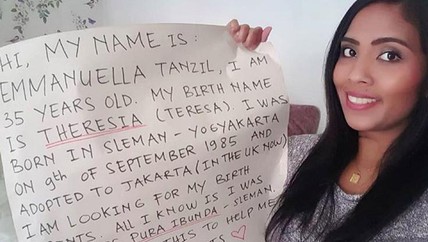 HI, MY NAME IS:
EMMANUELLA TANZIL, I AM
35 YEARS OLD. MY BIRTH NAME
IS THERESIA (TERESA). I WAS
BORN IN SLEMAN - YOGYAKARTA
ON 9th OF SEPTEMBER 1985 AND
ADOPTED TO JAKARTA (IN THE UK NOW)
I AM LOOKING FOR MY BIRTH
ENTS. ALL I KNOW IS I WAS
PURA IBUNDA - SLEMAN.
THIS TO HELP ME